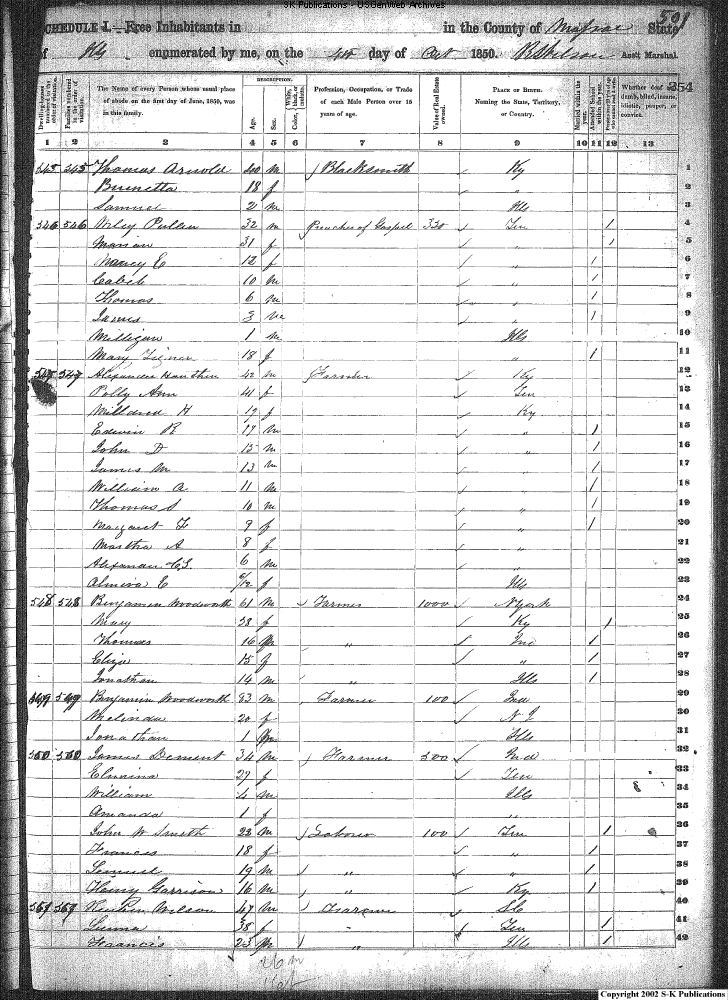 SK Publications - USGenWeb Archives
501
SCHEDULE I.—Free Inhabitants in in the County of Massac State
of Ills enumerated by me, on the 4th day of Oct 1850. R Wilson Ass't Marshal.
354
Dwelling-houses numbered in the order of visitation.
Families numbered in the order of visitation.
The Name of every Person whose usual place of abode on the first day of June, 1850, was in this family.
DESCRIPTION.
Age.
Sex.
White, black, or mulatto.
Color,
Profession, Occupation, or Trade of each Male Person over 15 years of age.
Value of Real Estate owned.
PLACE OF BIRTH. Naming the State, Territory, or Country.
Married within the year.
Attended School within the year.
Whether deaf & dumb, blind, insane, idiotic, pauper, or convict.
1 2 3 4 5 6 7 8 9 10 11 12 13
545 545 Thomas Arnold 40 m Blacksmith Ky 1
Brunetta 18 f " 2
Samuel 2 m Ills 3
546 546 Wiley Pullen 32 m Preacher of Gospel 330 Ten 1 4
Marian 31 f " 1 5
Nancy E 12 f " 1 6
Caleb 10 m " 1 7
Thomas 6 m " 1 8
James 3 m " 1 9
Milligan 1 m Ills 10
Mary 18 f " 1 11
547 547 Alexander 42 m Farmer Ky 12
Polly Ann 41 f Ten 13
Milldred H 19 f Ky 14
Edwin R 17 m " 1 15
John D 15 m " 1 16
James M 13 m " 1 17
William A 11 m 1 18
Thomas S 10 m " 1 19
Margaret F 9 f " 1 20
Martha A 8 f " 21
Alexander 6 m " 22
Almira E /12 f Ills 23
548 548 Benjamin Woodworth 61 m Farmer 1000 N York 24
Mary 38 f Ky 1 25
Thomas 16 m " Ind 1 26
Eliza 15 f " 1 27
Jonathan 14 m " Ills 1 28
549 549 Benjamin Woodworth 23 m Farmer 100 Ind 29
Melinda 20 f N 30
Jonathan 1 m Ills 31
550 550 James Dement 34 m Farmer 300 32
27 f Ten 33
William 4 m Ills 34
Amanda 1 f " 35
John W Smith 22 m Laborer 100 Ten 1 36
Frances 18 f " 1 37
Lemuel 19 m " " 1 38
Henry Garrison 16 m " Ky 1 39
551 551 Reuben Wilson 47 m Farmer 40
38 f Ten 1 41
Francis 23 m " Ills 1 42
26 m
16 f
Copyright 2002 S-K Publications